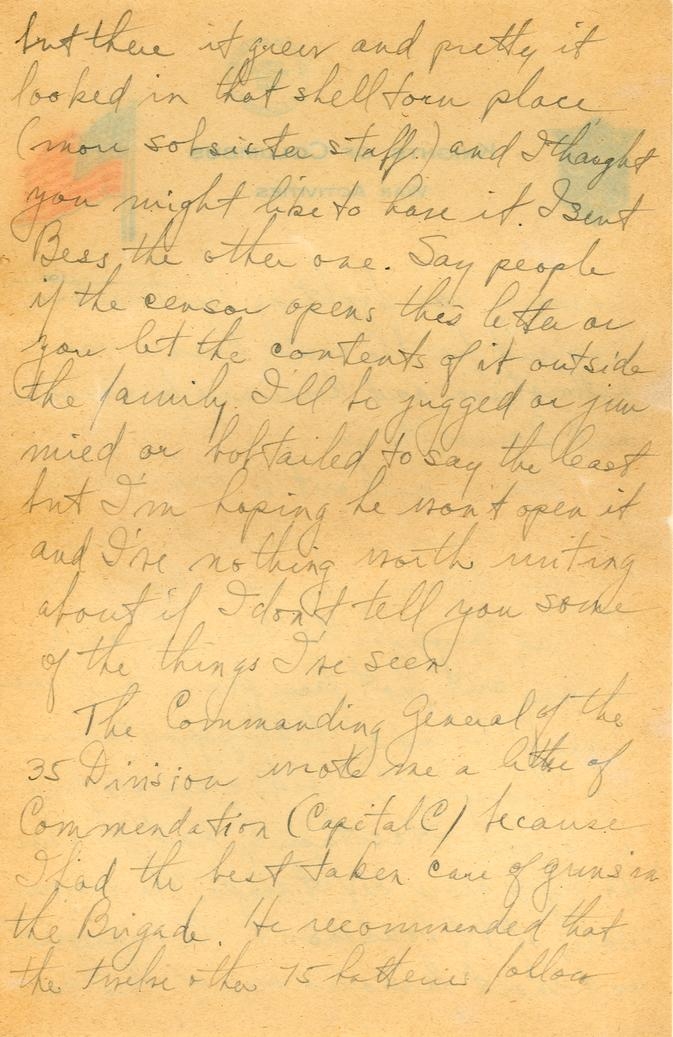 but there it grew and pretty it
looked in that shell torn place
(more sobsister stuff.) and I thought
you might like to have it. I sent
Bess the other one. Say people
if the censor opens this letter or
you let the contents of it outside
the family I'll be jugged or jim
mied or bobtailed to say the least
but I'm hoping he won't open it
and I've nothing worth writing
about if I don't tell you some
of the things I've seen.
The Commanding General of the
35 Division wrote me a letter of
Commendation (Capital C) because
I had the best taken care of guns in
the Brigade. He recommended that
the twelve other 75 batteries follow